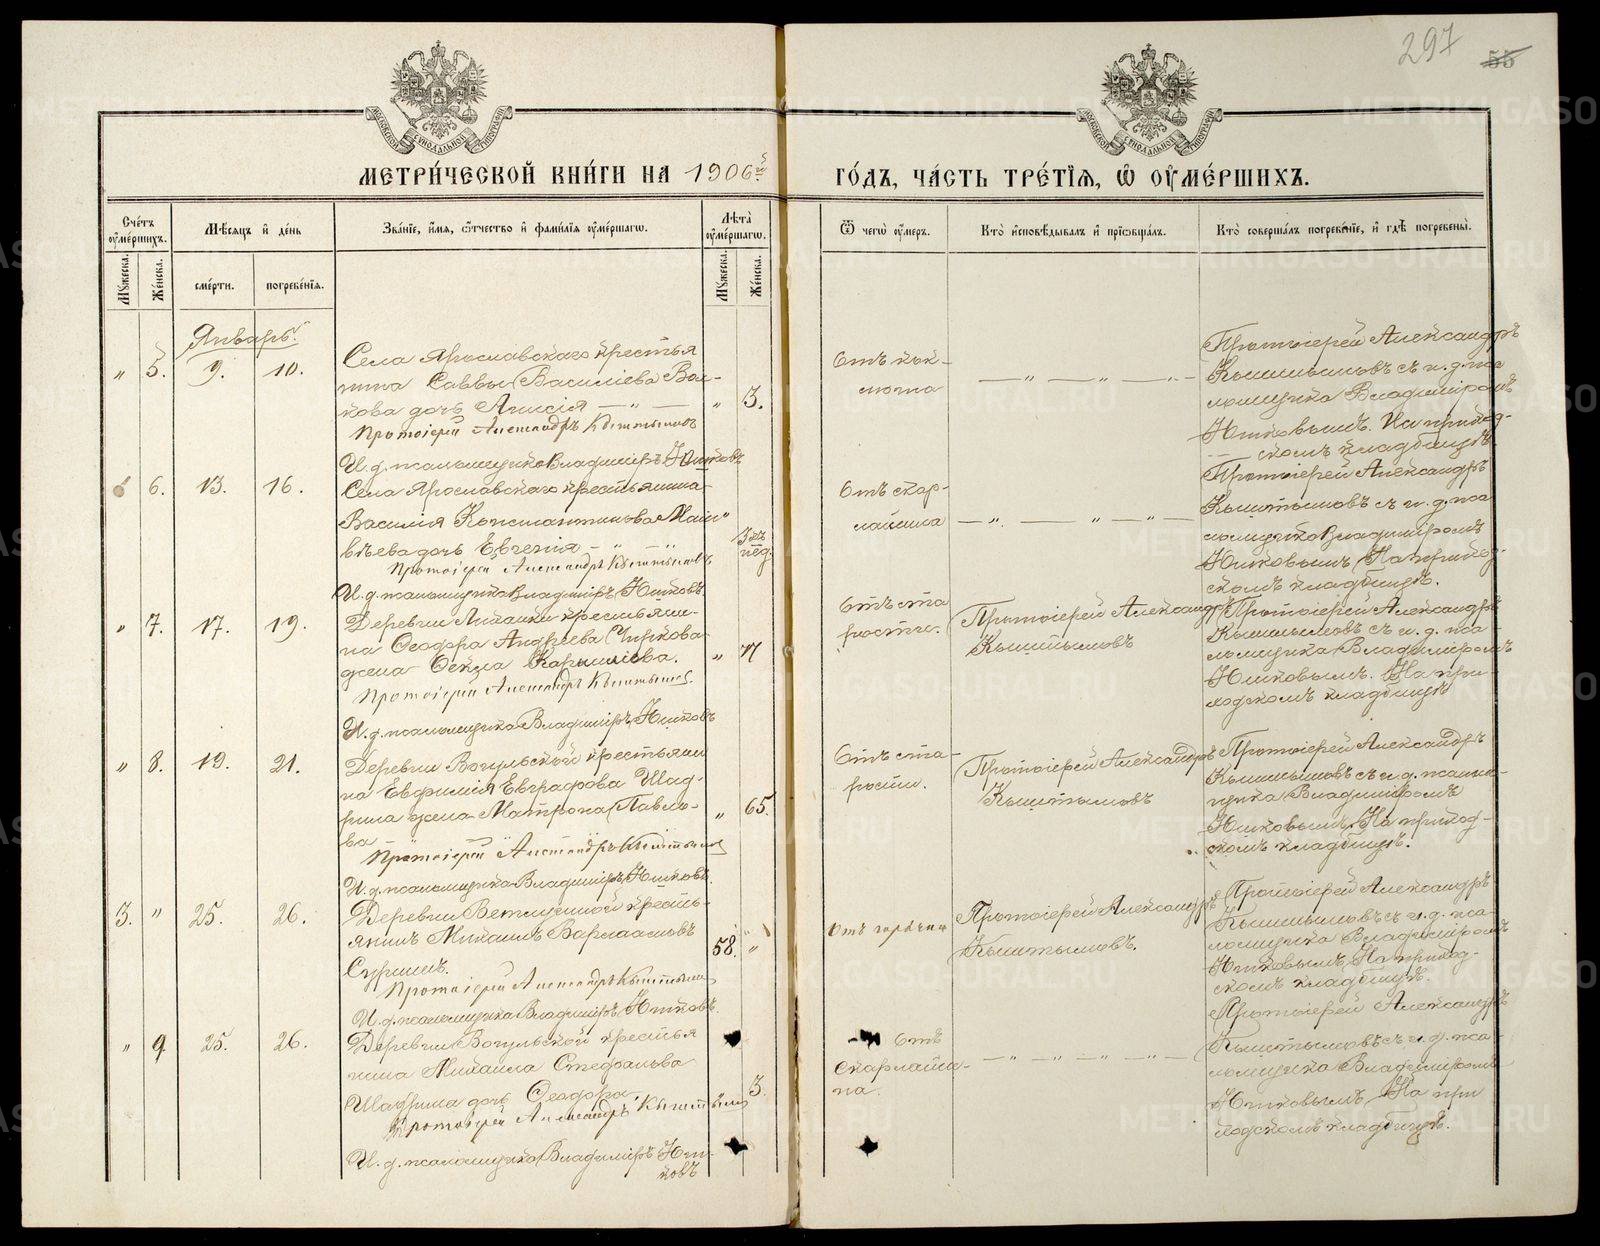 297
55
МОСКОВСКОЙ СѴНОДАЛЬНОЙ ТИПОГРАФІИ
МОСКОВСКОЙ СѴНОДАЛЬНОЙ ТИПОГРАФІИ
МЕТРИ́ЧЕСКОЙ КНИ́ГИ НА 1906й
ГО́ДЪ, ЧА́СТЬ ТРЕ́ТІѦ, Ѡ ОУМЕ́РШИХЪ.
Сче́тъ оуме́ршихъ.
Мѣ́сяцъ и҆ де́нь
Зва́ніе, и҆́мя, ѻ҆́тчество и҆ фами́лія оуме́ршагѡ.
Лѣ́та оуме́ршагѡ.
Мꙋ́жеска.
Же́нска.
сме́рти.
погребе́нія.
Мꙋ́жеска.
Же́нска.
Ѿ чегѡ̀ оу́меръ.
Кто̀ и҆сповѣ́дывалъ и҆ прїѡбща́лъ.
Кто̀ соверша́лъ погребе́ніе, и҆ гдѣ̀ погребены̀.
Январь.
" 5. 9. 10.
Села Ярославскаго крестья
нина Саввы Василіева Вол-
кова дочь Анисія — " —
" 3.
Протоіерей Александръ Кыштымовъ
И. д. псаломщика Владиміръ Ютковъ
Отъ кок-
люша
— " — " — " —
Протоіерей Александръ
Кыштымовъ съ и. д. пса
ломщика Владиміромъ
Ютковымъ. На приход-
скомъ кладбищѣ.
6. 13. 16.
Села Ярославскаго крестьянина
Василія Константинова Мат
вѣева дочь Евгенія — " — "
3
нед.
Протоіерей Александръ Кыштымовъ
И. д. псаломщика Владиміръ Ютковъ.
Отъ скар-
латина
— " — " — " —
Протоіерей Александръ
Кыштымовъ съ и. д. пса
ломщика Владиміромъ
Ютковымъ. На приход-
скомъ кладбищѣ.
" 7. 17. 19.
Деревни крестьяни-
на Ѳеодора Андреева Чиркова
жена Карпилова.
" 77
Протоіерей Александръ Кыштымовъ
И. д. псаломщика Владиміръ Ютковъ
Отъ ста
рости.
Протоіерей Александръ
Кыштымовъ
Протоіерей Александръ
Кыштымовъ съ и. д. пса-
ломщика Владиміромъ
Ютковымъ. На при-
ходскомъ кладбищѣ
" 8. 19. 21.
Деревни Вогульской крестьяни
на Евфимія Евграфова Шад-
рина жена Матрона Павло-
ва — "
" 65.
Протоіерей Александръ Кыштымовъ
И. д. псаломщика Владиміръ Ютковъ.
Отъ ста-
рости.
Протоіерей Александръ
Кыштымовъ
Протоіерей Александръ
Кыштымовъ съ и. д. псалом-
щика Владиміромъ
Ютковымъ. На приход-
скомъ кладбищѣ.
3. " 25. 26.
Деревни крестья-
янинъ Михаилъ Варлаамовъ
58. "
Протоіерей Александръ Кыштымовъ
И. д. псаломщика Владиміръ Ютковъ.
Отъ горячки
Протоіерей Александръ
Кыштымовъ.
Протоіерей Александръ
Кыштымовъ съ и. д. пса-
ломщика Владиміромъ
Ютковымъ. На приход-
скомъ кладбищѣ.
" 9. 25. 26.
Деревни Вогульской крестья
нина Михаила Стефанова
Шадрина дочь Ѳеодора.
3.
Протоіерей Александръ Кыштымовъ
И. д. псаломщика Владиміръ Ют-
ковъ
Отъ
скарлати-
на.
— " — " — " — " —
Протоіерей Александръ
Кыштымовъ съ и. д. пса-
ломщика Владиміромъ
Ютковымъ. На при
ходскомъ кладбищѣ.
METRIKI.GASO-URAL.RU